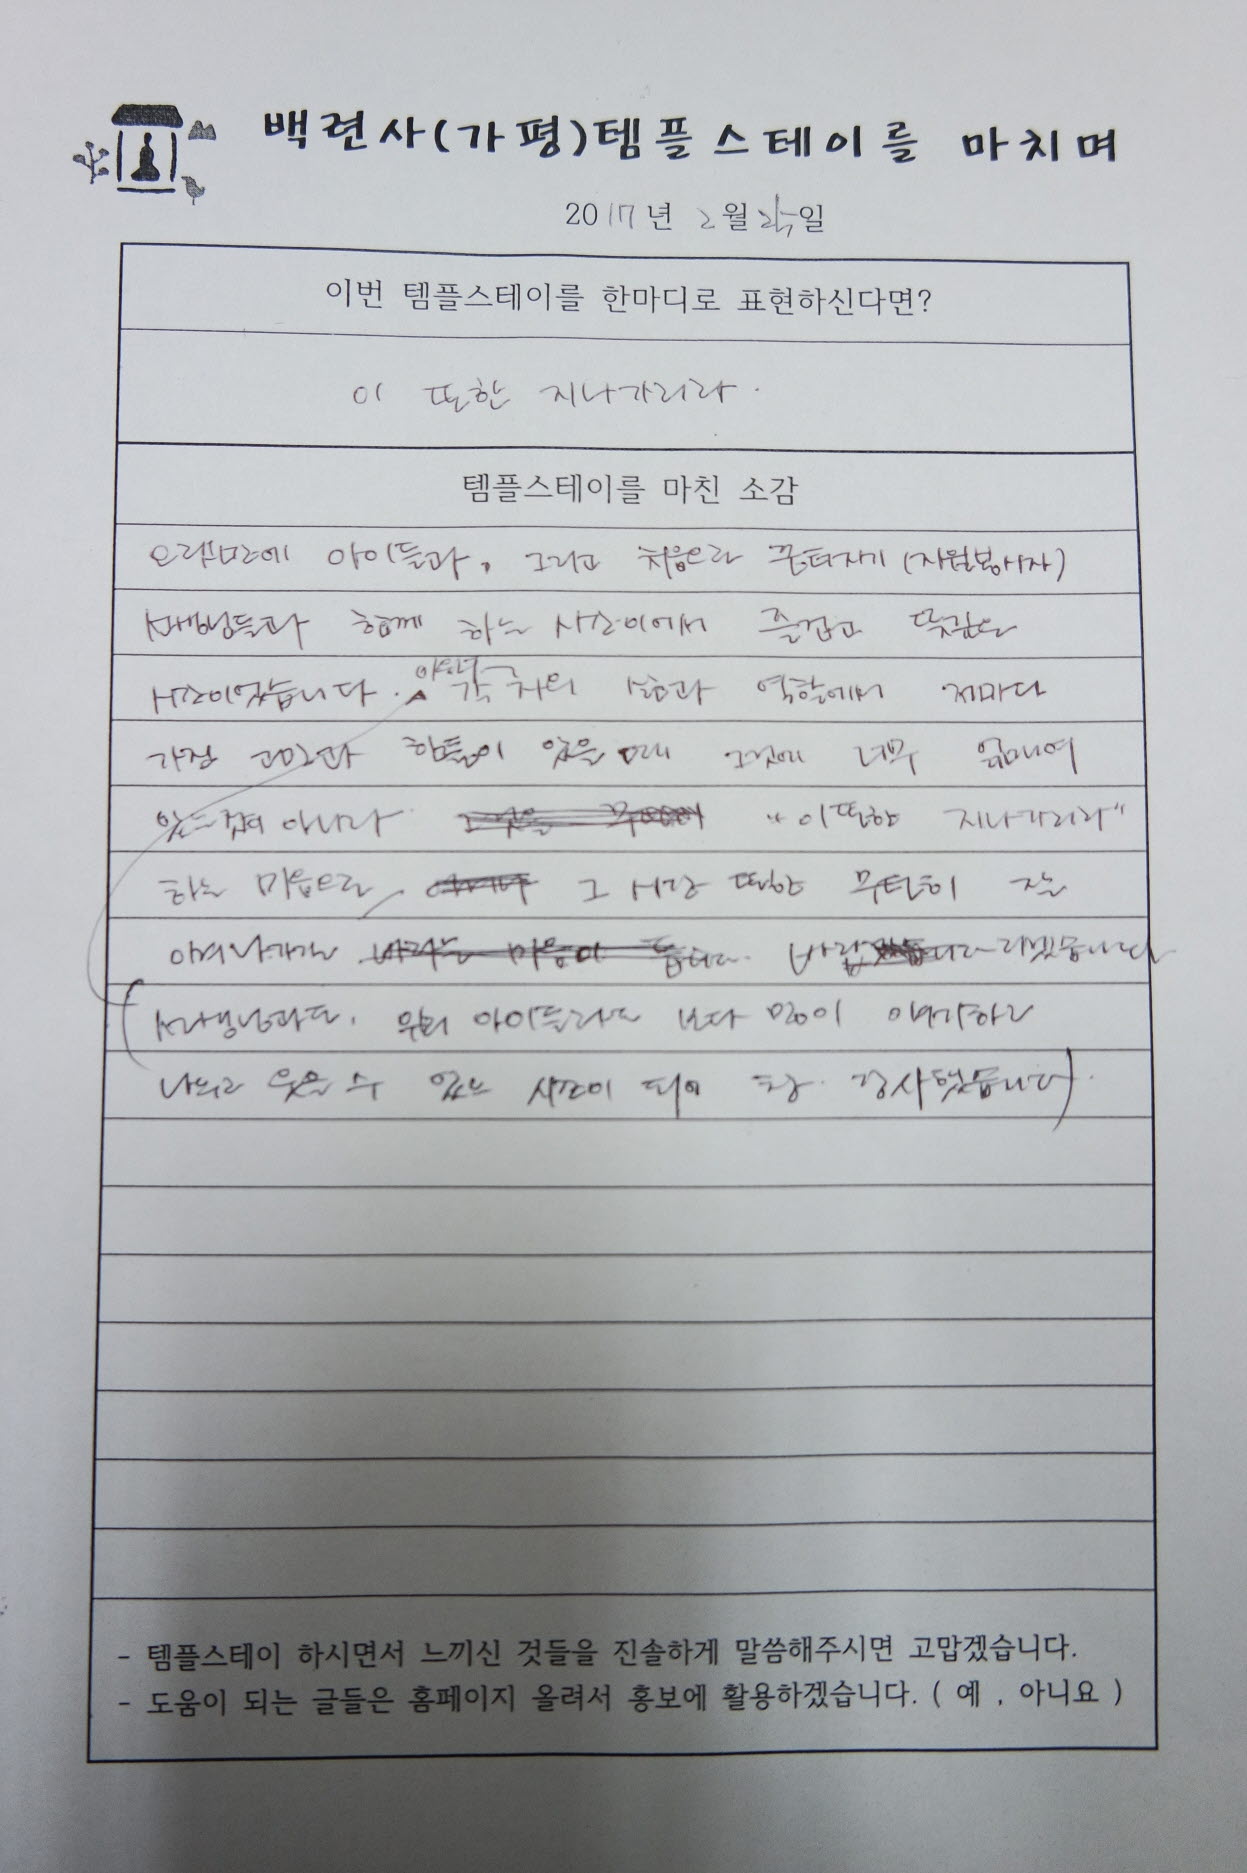 백련사(가평)템플스테이를 마치며
2017년 2월 25일
이번 템플스테이를 한마디로 표현하신다면?
이 또한 지나가리라.
템플스테이를 마친 소감
오랜만에 아이들과, 그리고 처음으로 꿈터지기(자원봉사자)
선생님들과 함께 하는 시간이어서 즐겁고 뜻깊은
시간이었습니다. 각자의 삶과 역할에서 저마다
가진 고민과 힘듦이 있을 때 그것에 너무 얽매여
있는 것이 아니라 "이또한 지나가리라"
하는 마음으로 그 시간 또한 무던히 가는
이겨나가길 바랍니다
선생님과도, 우리 아이들과도 보다 많이 이야기하고
나누고 웃을 수 있는 시간이 되어 참 감사했습니다.
- 템플스테이 하시면서 느끼신 것들을 진솔하게 말씀해주시면 고맙겠습니다.
- 도움이 되는 글들은 홈페이지 올려서 홍보에 활용하겠습니다. ( 예 , 아니요 )